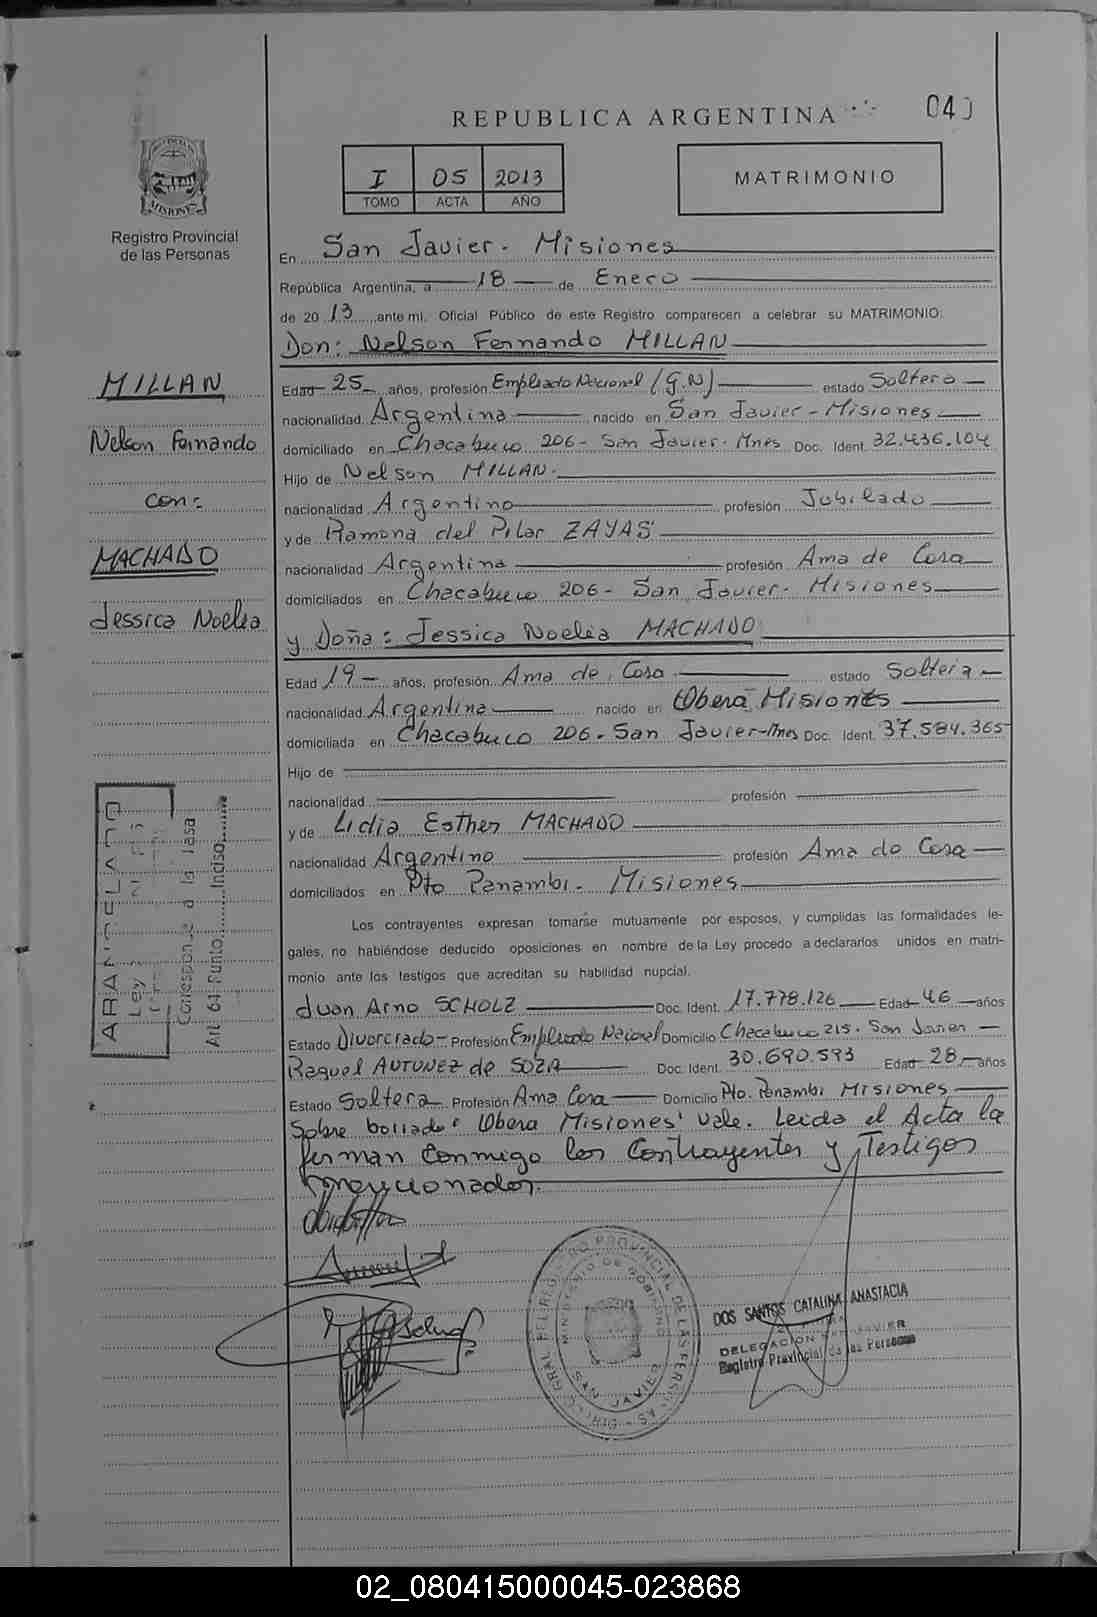 REPUBLICA ARGENTINA
040
I 05 2013
TOMO ACTA AÑO
MATRIMONIO
MISIONES
Registro Provincial
de las Personas
En San Javier - Misiones
República Argentina, a 18 de Enero
de 20 13 ante mi, Oficial Público de este Registro comparecen a celebrar su MATRIMONIO:
Don: Nelson Fernando MILLAN
MILLAN
Nelson Fernando
con:
MACHADO
Jessica Noelia
Edad 25 años, profesión Empleado Nacional (G.N) estado Soltero
nacionalidad Argentina nacido en San Javier - Misiones
domiciliado en Chacabuco 206 - San Javier - Mnes Doc. Ident. 32.436.104
Hijo de Nelson MILLAN
nacionalidad Argentino profesión Jubilado
y de Ramona del Pilar ZAYAS
nacionalidad Argentina profesión Ama de Casa
domiciliados en Chacabuco 206 - San Javier - Misiones
y Doña: Jessica Noelia MACHADO
Edad 19 años, profesión Ama de Casa estado Soltera
nacionalidad Argentina nacido en Oberá Misiones
domiciliada en Chacabuco 206 - San Javier - Mnes Doc. Ident. 37.584.365
Hijo de
nacionalidad profesión
y de Lidia Esther MACHADO
nacionalidad Argentino profesión Ama de Casa
domiciliados en Pto Panambi - Misiones
Los contrayentes expresan tomarse mutuamente por esposos, y cumplidas las formalidades le-
gales, no habiéndose deducido oposiciones en nombre de la Ley procedo a declararlos unidos en matri-
monio ante los testigos que acreditan su habilidad nupcial.
Juan Arno SCHOLZ Doc. Ident. 17.778.126 Edad 46 años
Estado Divorciado - Profesión Empleado Nacional Domicilio Chacabuco 215 - San Javier
Raquel ANTUNEZ de SOZA Doc. Ident. 30.690.593 Edad 28 años
Estado Soltera Profesión Ama Casa Domicilio Pto. Panambi Misiones
Sobre borrado: "Obera Misiones" Vale. Leida el Acta la
firman Conmigo los Contrayentes y Testigos
mencionados.
ARANCELADO
Ley
Corresponde a la Tasa
Art. 61 Punto Inciso
REGISTRO PROVINCIAL DE LAS PERSONAS
MINISTERIO DE GOBIERNO
SAN JAVIER
DOS SANTOS CATALINA ANASTACIA
DELEGACION SAN JAVIER
Registro Provincial de las Personas
02_080415000045-023868